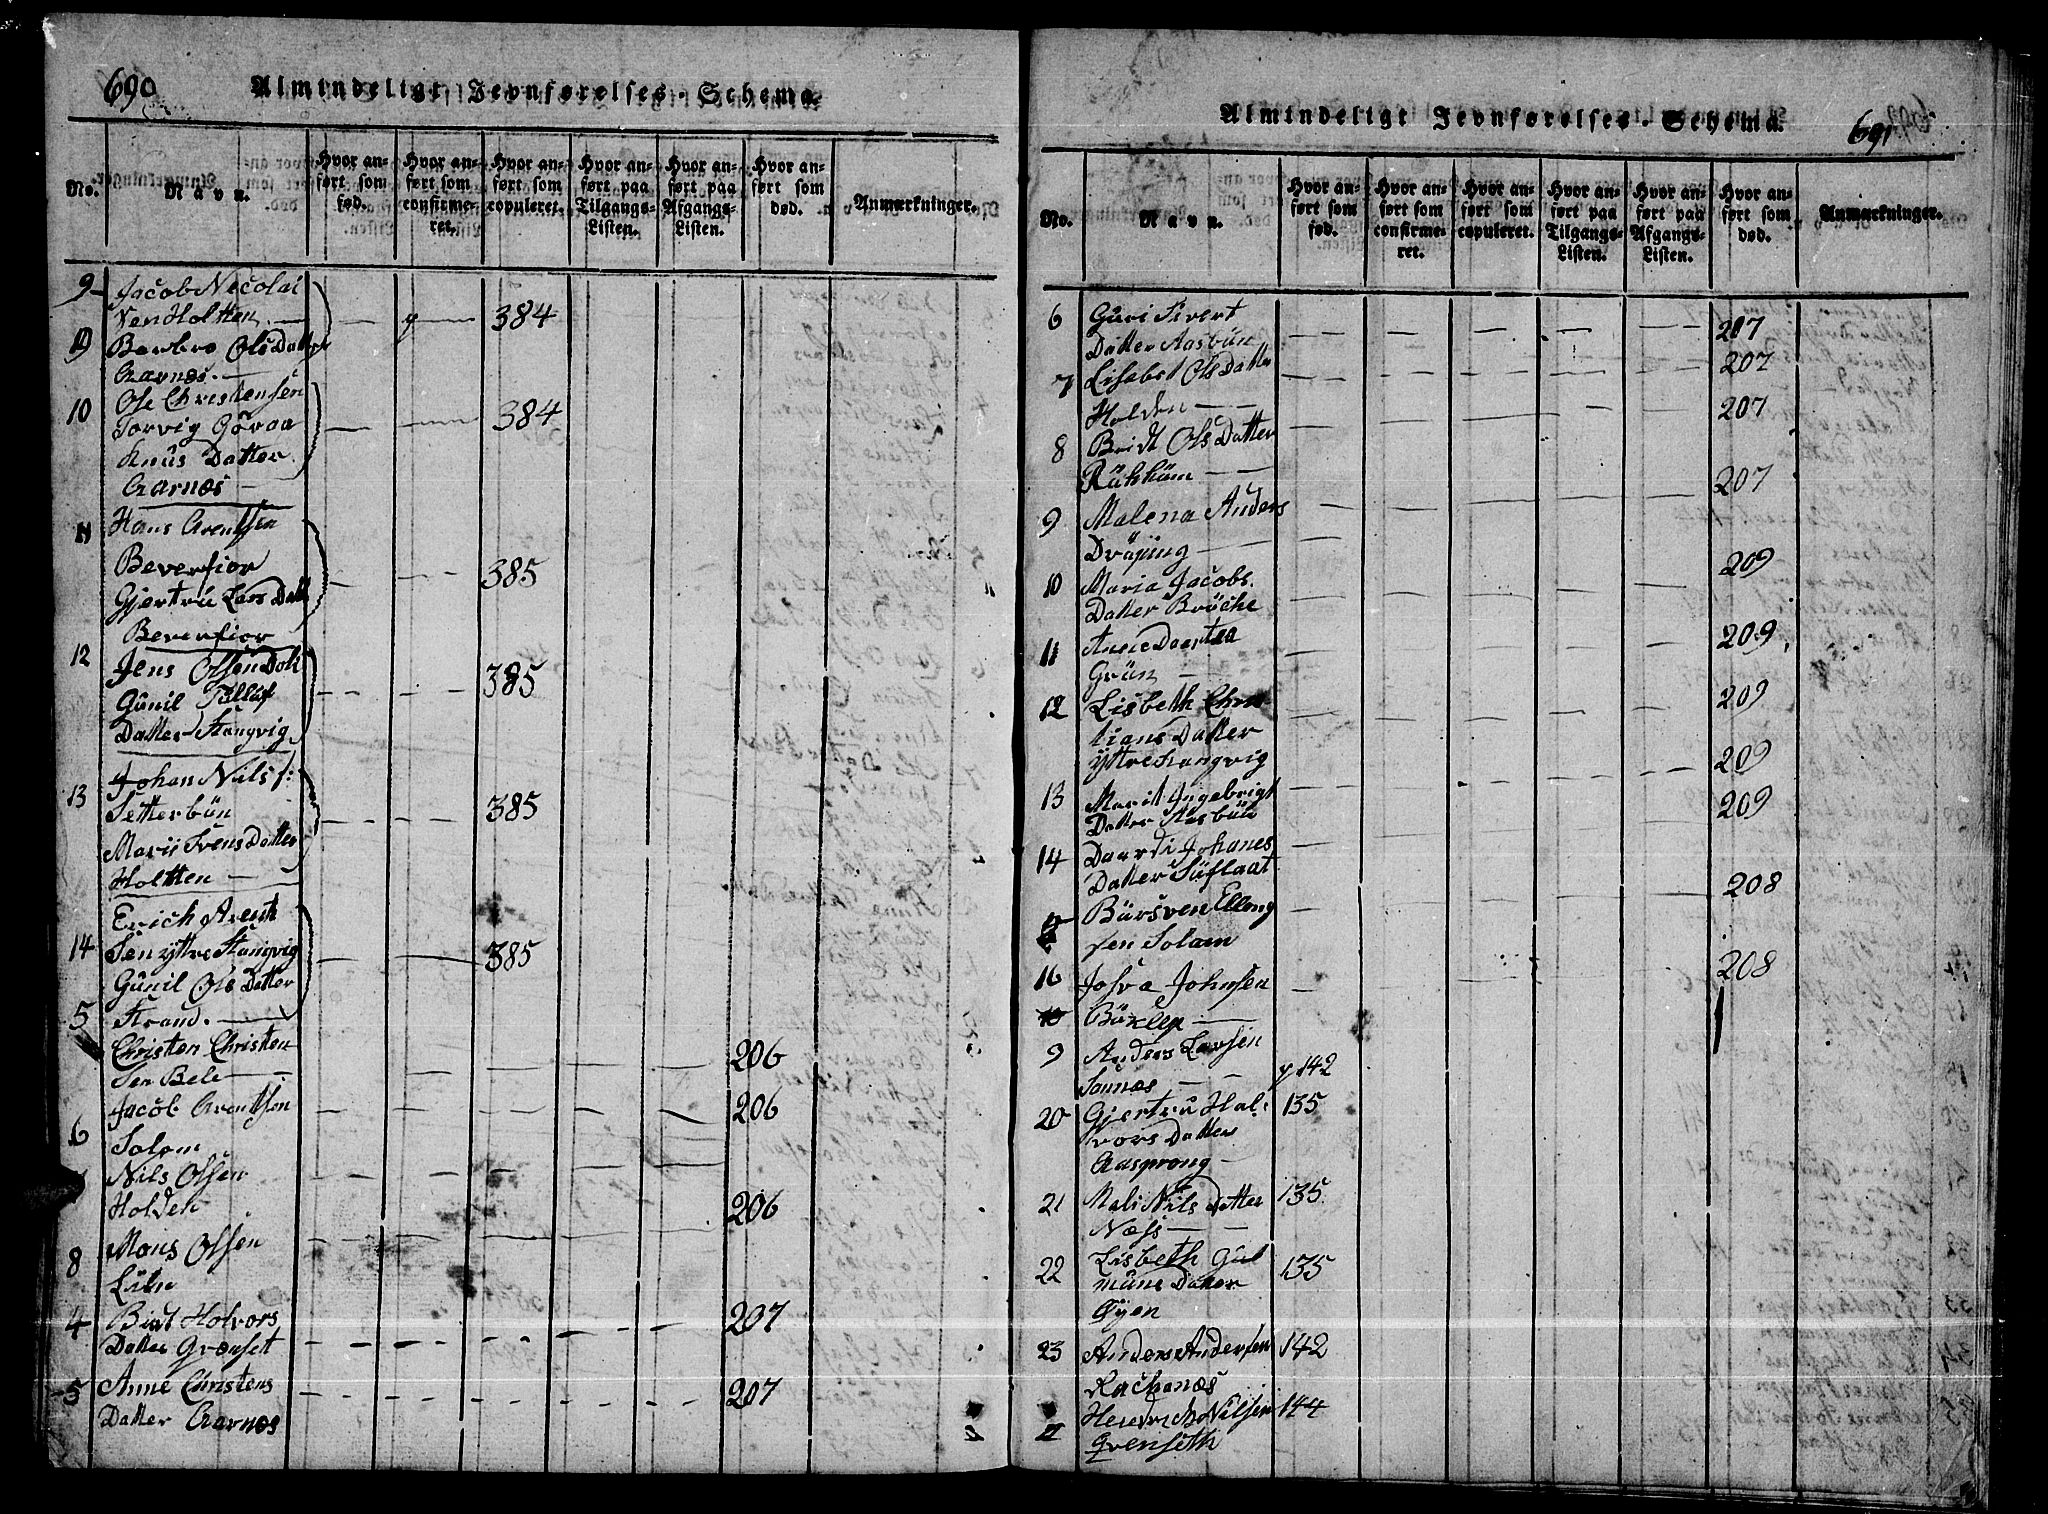 690
Almindeligt Jevnførelses-Schema.
No.
Navn.
Hvor an-
ført som
fød.
Hvor an-
ført som
confirme-
ret.
Hvor an-
ført som
copuleret.
Hvor an-
ført paa
Tilgangs-
Listen.
Hvor an-
ført paa
Afgangs-
Listen.
Hvor an-
ført som
død.
Anmærkninger.
9 Jacob Nicolai
sen Holtten 384
Berbro Ols Datter
Aarnæs.
10 Ole Christensen
Torvig Göroa 384
Knüs Datter
Aarnæs
11 Hans Arentsen
Beverfior 385
Gjertrü Lars Datt
Beverfior
12 Jens Olsen Doli
Günil 385
Datter Stangvig
13 Johan Nils s:
Setterbün 385
Marii Svens Datter
Holtten
Erich Arent
14 Sen yttre Stangvig 385
Günil Ols Datter
5 Strand.
Christen Christen 206
Sen Bele
Jacob Arentsen 206
6 Solem
Nils Olsen
Holden 206
Mons Olsen
8 Lien
4 Birit Holvors 207
Datter Grenset
5 Anne Christens 207
Datter Aarnæs
691
Almindeligt Jevnførelses-Schema.
No.
Navn.
Hvor an-
ført som
fød.
Hvor an-
ført som
confirme-
ret.
Hvor an-
ført som
copuleret.
Hvor an-
ført paa
Tilgangs-
Listen.
Hvor an-
ført paa
Afgangs-
Listen.
Hvor an-
ført som
død.
Anmærkninger.
6 Guri Sivert 207
Datter Aasbün
7 Lisabet Ols Datter 207
Holden 207
8 Bridt Ols Datter
Rükküm 207
9 Malena Anders
Dröping 209
10 Maria Jacobs.
Datter Bröske
11 209
Grün
12 Lisbeth Chris 209
tians Datter
yttre Stangvig 209
13 Marit Ingebrigt 209
Datter Aasbün
14 Daardi Johanes
Datter Süflaat 208
Bürsven Elling
sen Solem
16 Josva Johnsen 208
9 Anders Larsen
Sannæs 142
20 Gjertru Hal- 135
vors Datter
Aasprong
21 Mali Nils Datter 135
Næss
Lisbeth Gul
22 müns Datter 135
Øyen
23 Anders Andersen 142
Rachanæs
Hendrich Nilsen 144
Grenseth